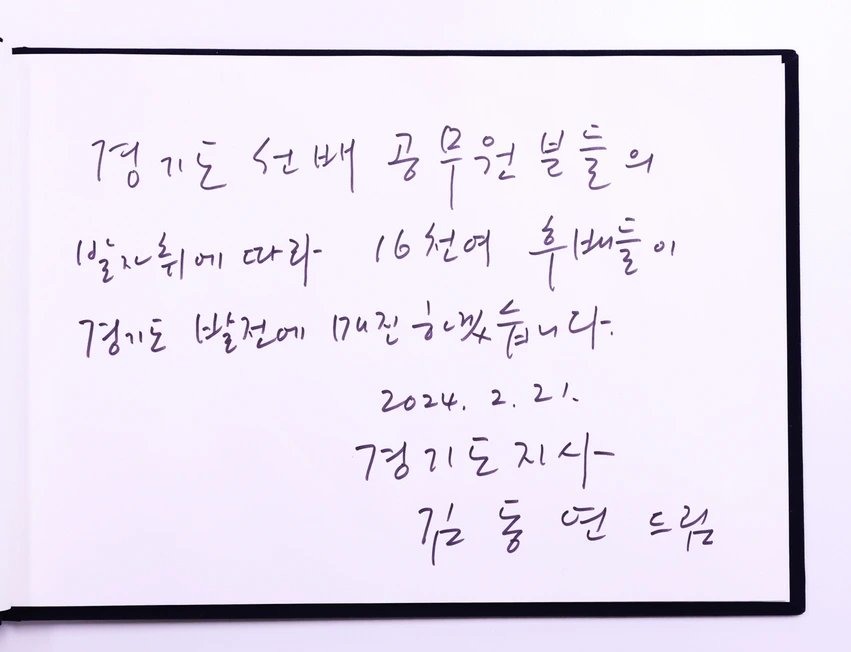 경기도 선배 공무원분들의
발자취에 따라 16천여 후배들이
경기도 발전에 매진하겠습니다.
2024. 2. 21.
경기도지사
김동연 드림